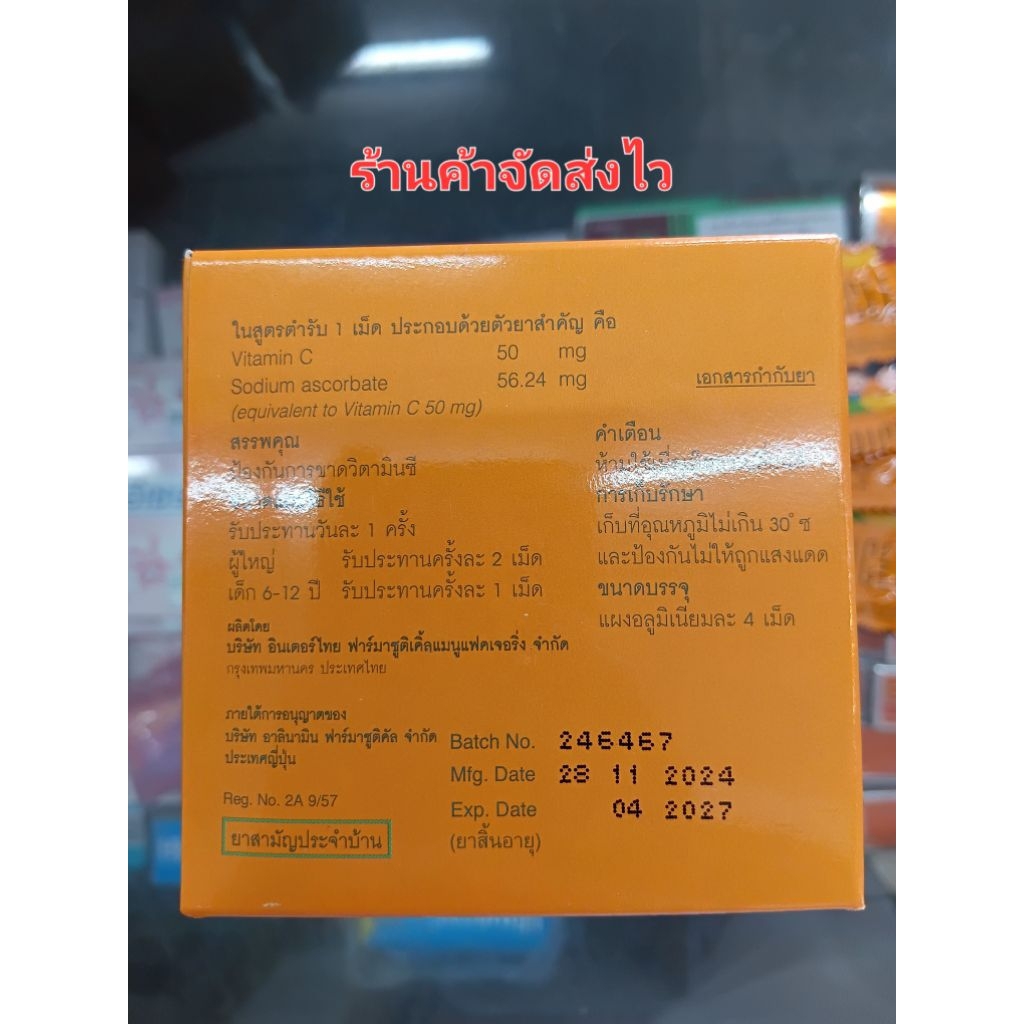 ร้านค้าจัดส่งไว
ในสูตรตำรับ 1 เม็ด ประกอบด้วยตัวยาสำคัญ คือ
Vitamin C 50 mg
Sodium ascorbate 56.24 mg
(equivalent to Vitamin C 50 mg)
เอกสารกำกับยา
สรรพคุณ
ป้องกันการขาดวิตามินซี
รับประทานวันละ 1 ครั้ง
ผู้ใหญ่ รับประทานครั้งละ 2 เม็ด
เด็ก 6-12 ปี รับประทานครั้งละ 1 เม็ด
คำเตือน
การเก็บรักษา
เก็บที่อุณหภูมิไม่เกิน 30°ซ
และป้องกันไม่ให้ถูกแสงแดด
ขนาดบรรจุ
แผงอลูมิเนียมละ 4 เม็ด
ผลิตโดย
บริษัท อินเตอร์ไทย ฟาร์มาซูติเคิ้ลแมนูแฟคเจอริ่ง จำกัด
กรุงเทพมหานคร ประเทศไทย
ภายใต้การอนุญาตของ
บริษัท อาลินามิน ฟาร์มาซูติคัล จำกัด
ประเทศญี่ปุ่น
Reg. No. 2A 9/57
ยาสามัญประจำบ้าน
Batch No. 246467
Mfg. Date 28 11 2024
Exp. Date 04 2027
(ยาสิ้นอายุ)